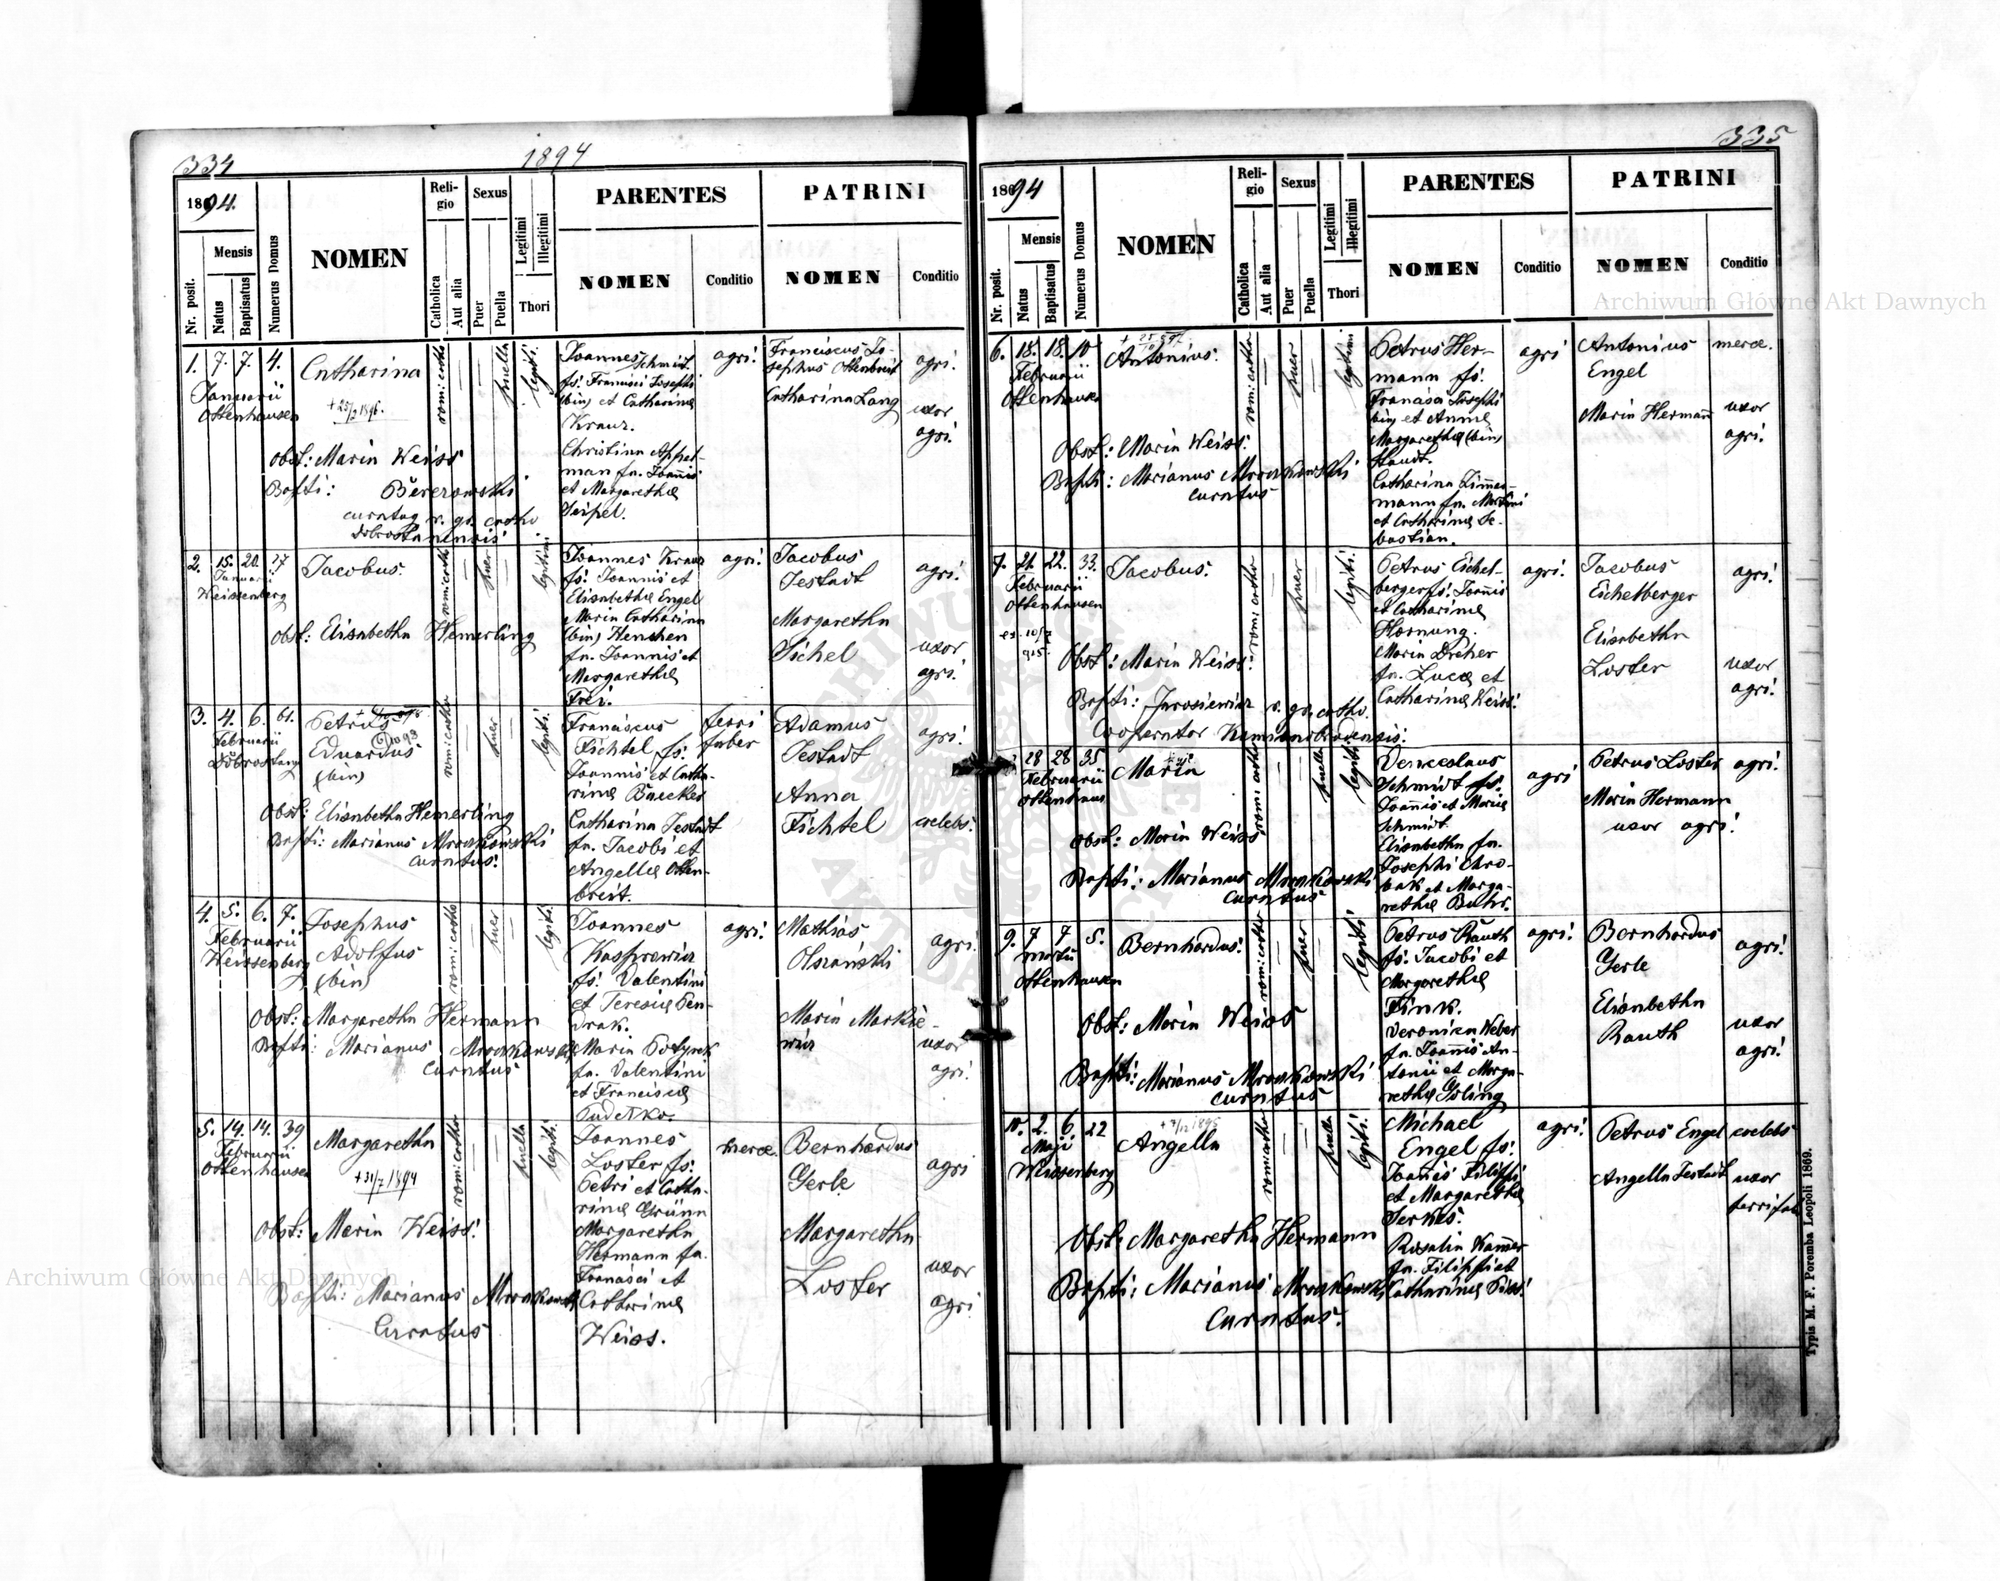 334
1894
1894.
Nr. posit.
Mensis
Natus
Baptisatus
Numerus Domus
NOMEN
Religio
Catholica
Aut alia
Sexus
Puer
Puella
Legitimi
Illegitimi
Thori
PARENTES
NOMEN
Conditio
PATRINI
NOMEN
Conditio
1. 7. 7. 4.
Januarii
Ottenhausen
Catharina
rom: catho
puella
legiti.
Joannes Schmidt
fs: Francisci Josephi
(bin) et Catharinae
Kraus.
Christina Appel-
man fa. Joannis
et Margarethae
Seipel.
agri.
Franciscus Jo-
sephus Ottenbreit
Catharina Lang
agri.
uxor
agri.
Obst: Maria Weiss
Bapti: Berezowski
curatus r. gr. catho.
Dobrostanensis
2. 15. 20. 27
Januarii
Weissenberg
Jacobus.
rom: catho
puer
legitimi
Joannes Kraus
fs. Joannis et
Elisabethae Engel
Maria Catharina
(bin) Henchen
fa. Joannis et
Margarethae
Frei.
agri.
Jacobus
Testadt
Margaretha
Sichel
agri.
uxor
agri.
Obst: Elisabetha Hemerling
3. 4. 6. 61.
Februarii
Dobrostany
Petrus
Eduardus
(bin)
rom: catho
puer
legiti.
Franciscus
Fichtel fs:
Joannis et Catha-
rinae Baecker
Catharina Testadt
fa. Jacobi et
Angellae Otten-
breit.
ferri
faber
Adamus
Testadt
Anna
Fichtel
agri.
caelebs.
Obst: Elisabetha Hemerling
Bapti: Marianus Mroczkowski
curatus.
4. 5. 6. 7.
Februarii
Weissenberg
Josephus
Adolfus
(bin)
rom: catho
puer
legiti.
Joannes
Kasprewicz
fs: Valentini
et Teresiae Pen-
drak.
Maria Potyrek
fa. Valentini
et Franciscae
Dudetko.
agri.
Mathias
Olszański
Maria Markie-
wicz
agri.
uxor
agri.
Obst: Margaretha Hermann
Bapti: Marianus Mroczkowski
curatus
5. 14. 14. 39
Februarii
Ottenhausen
Margaretha
+31/7 1894
rom: catho
puella
legiti.
Joannes
Loster fs:
Petri et Catha-
rinae Grünn
Margaretha
Hermann fa.
Francisci et
Catharinae
Weiss.
merce.
Bernhardus
Gerle
Margaretha
Loster
agri
uxor
agri
Obst: Maria Weiss.
Bapti: Marianus Mroczkowski
Curatus
335
1894
Nr. posit.
Mensis
Natus
Baptisatus
Numerus Domus
NOMEN
Religio
Catholica
Aut alia
Sexus
Puer
Puella
Legitimi
Illegitimi
Thori
PARENTES
NOMEN
Conditio
PATRINI
NOMEN
Conditio
6. 18. 18. 10
Februarii
Ottenhausen
Antonius.
rom: catho
puer
legitimi
Petrus Her-
mann fs:
Francisci Josephi
(bin) et Annae
Margarethae (bin)
Staudt.
Catharina Zimmer-
mann fa. Martini
et Catharinae Se-
bastian.
agri
Antonius
Engel
Maria Hermann
merce.
uxor
agri.
Obst: Maria Weiss.
Bapti: Marianus Mroczkowski
curatus
7. 21. 22. 33.
Februarii
Ottenhausen
Jacobus.
rom: catho
puer
legiti.
Petrus Eichel-
berger fs: Joannis
et Catharinae
Hornung.
Maria Dreher
fa. Lucae et
Catharinae Weiss.
agri.
Jacobus
Eichelberger
Elisabetha
Loster
agri.
uxor
agri.
Obst: Maria Weiss.
Bapti: Jarosiewicz r. gr. catho.
Cooperator Kamienobrodensis.
28 28 35
Februarii
Ottenhaus
Maria
rom: catho
puella
legiti.
Venceslaus
Schmidt fs:
Joannis et Mariae
Schmidt
Elisabetha fa.
Josephi Chro-
bak et Marga-
rethae Buhr.
agri
Petrus Loster agri.
Maria Hermann
uxor agri.
Obst: Maria Weiss
Bapti: Marianus Mroczkowski
curatus
9. 7 7 5.
Martii
Ottenhausen
Bernhardus.
rom: catho
puer
legiti.
Petrus Rauth
fs: Jacobi et
Margarethae
Fink.
Veronica Weber
fa. Joannis An-
tonii et Marga-
rethae Göling
agri.
Bernhardus
Gerle
Elisabetha
Rauth
agri.
uxor
agri.
Obst: Maria Weiss
Bapti: Marianus Mroczkowski
curatus
10. 2. 6 22
Maji
Weissenberg
+ 7/12 1895
Angella
rom: catho
puella
legiti.
Michael
Engel fs:
Joannis Filippi
et Margarethae
Serkes.
Rosalia Kammer
fa. Filippi et
Catharinae Piss.
agri.
Petrus Engel
Angella Testadt
caelebs
uxor
ferrifab
Obst: Margaretha Hermann
Bapti: Marianus Mroczkowski
Curatus.
Typis M. F. Poremba Leopoli 1869.
Archiwum Główne Akt Dawnych
Archiwum Główne Akt Dawnych